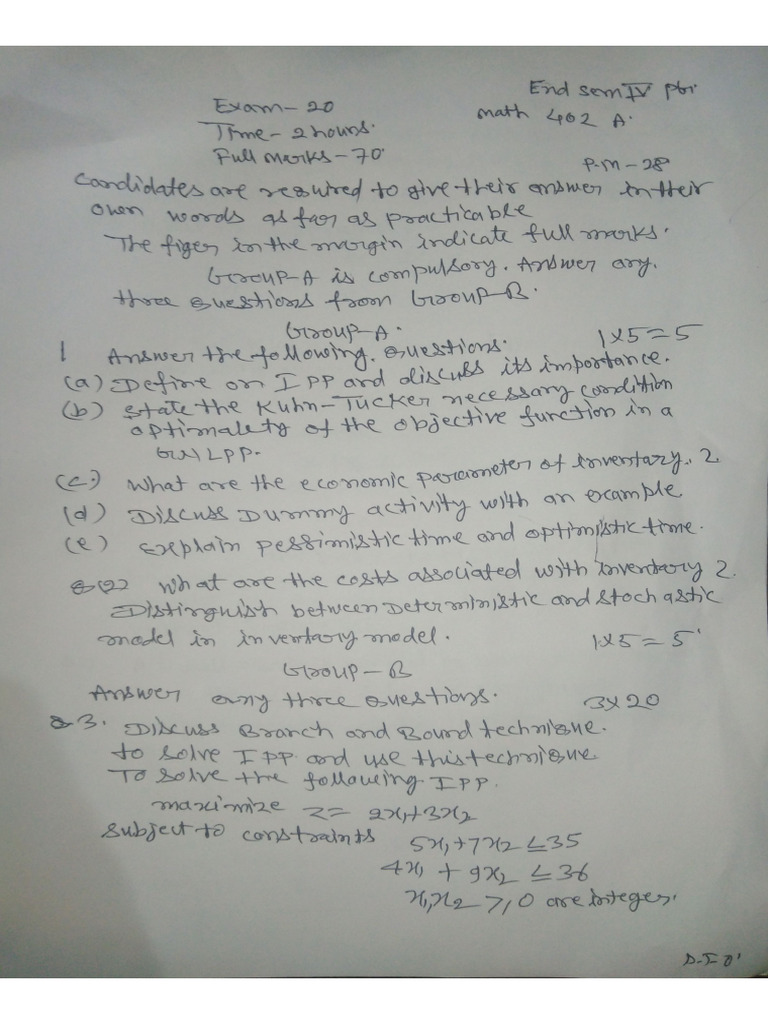 End sem IV
Exam - 20
math 402 A.
Time - 2 hours.
Full marks - 70.
P.M - 28
Candidates are required to give their answer in their
own words as far as practicable
The figer in the margin indicate full marks.
Group-A is compulsory. Answer any.
three questions from Group-B.
Group-A.
1 Answer the following questions. 1x5=5
(a) Define on IPP and discuss its importance.
(b) State the Kuhn-Tucker necessary condition
optimality of the objective function in a
LPP.
(c.) What are the economic parameter of inventary. 2
(d) Discuss Dummy activity with an example
(e) Explain pessimistic time and optimistic time.
Q(2) What are the costs associated with inventary 2.
Distinguish between Deterministic and Stochastic
model in inventary model. 1x5=5
Group-B
Answer any three questions. 3x20
Q3. Discuss Branch and Bound technique.
to solve IPP and use this technique
To solve the following IPP.
maximize z = 2x₁+3x₂
Subject to constraints 5x₁+7x₂ ≤35
4x₁ + 9x₂ ≤36
x₁,x₂ ≥0 are integer.